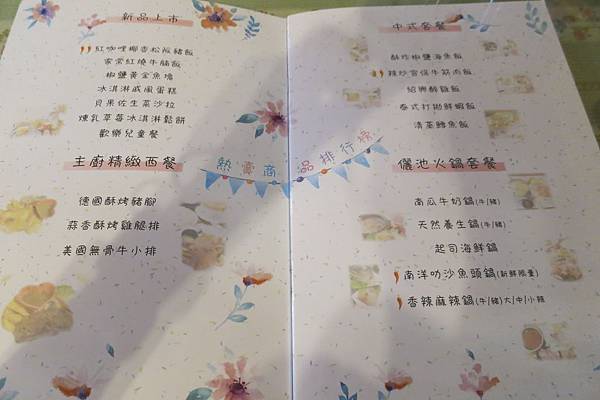 新品上市
紅咖哩椰香松阪豬飯
家常紅燒牛腩飯
椒鹽黃金魚塊
冰淇淋戚風蛋糕
貝果佐生菜沙拉
煉乳草莓冰淇淋鬆餅
歡樂兒童餐
主廚精緻西餐
德國酥烤豬腳
蒜香酥烤雞腿排
美國無骨牛小排
熱賣商品排行榜
中式套餐
酥炸椒鹽海魚飯
辣炒宮保牛筋肉飯
紹興醉雞飯
泰式打拋鮮蝦飯
清蒸鱈魚飯
儷池火鍋套餐
南瓜牛奶鍋(牛/豬)
天然養生鍋(牛/豬)
起司海鮮鍋
南洋叻沙魚頭鍋(新鮮限量)
香辣麻辣鍋(牛/豬)大/中/小辣